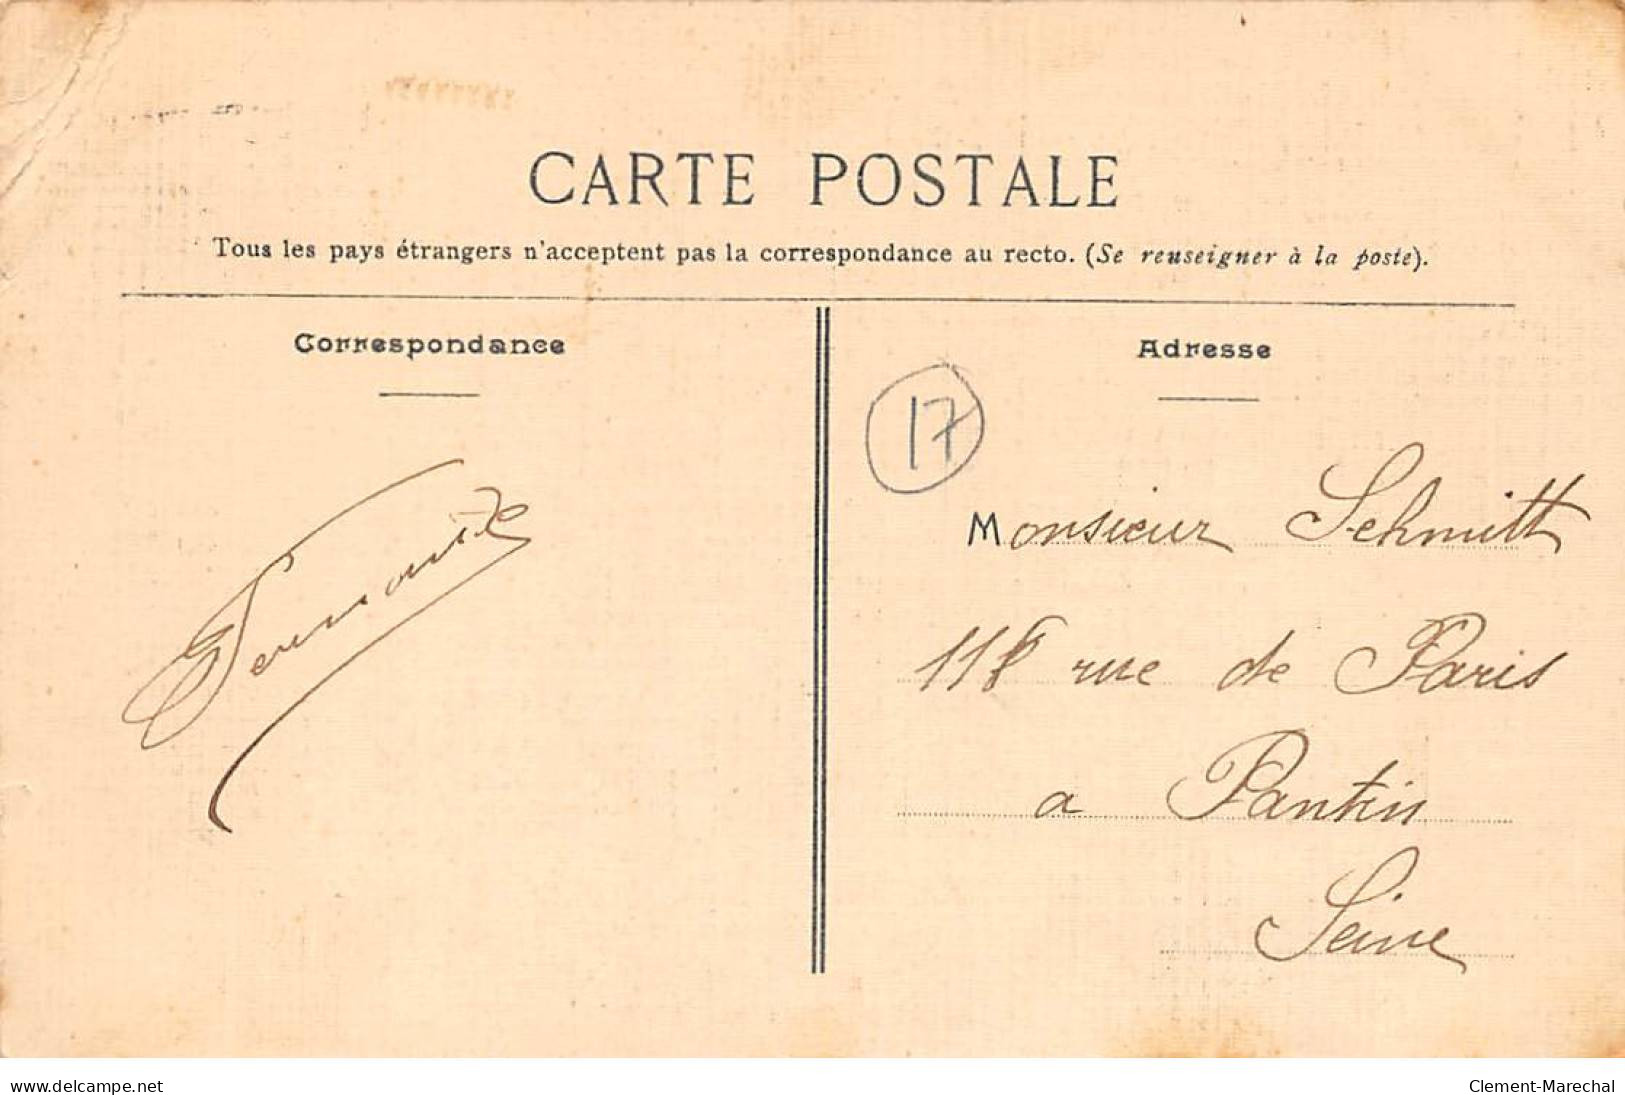 CARTE POSTALE
Tous les pays étrangers n'acceptent pas la correspondance au recto. (Se renseigner à la poste).
Correspondance
Adresse
17
Monsieur Schmitt
118 rue de Paris
a Pantin
Seine
www.delcampe.net
Clement-Marechal